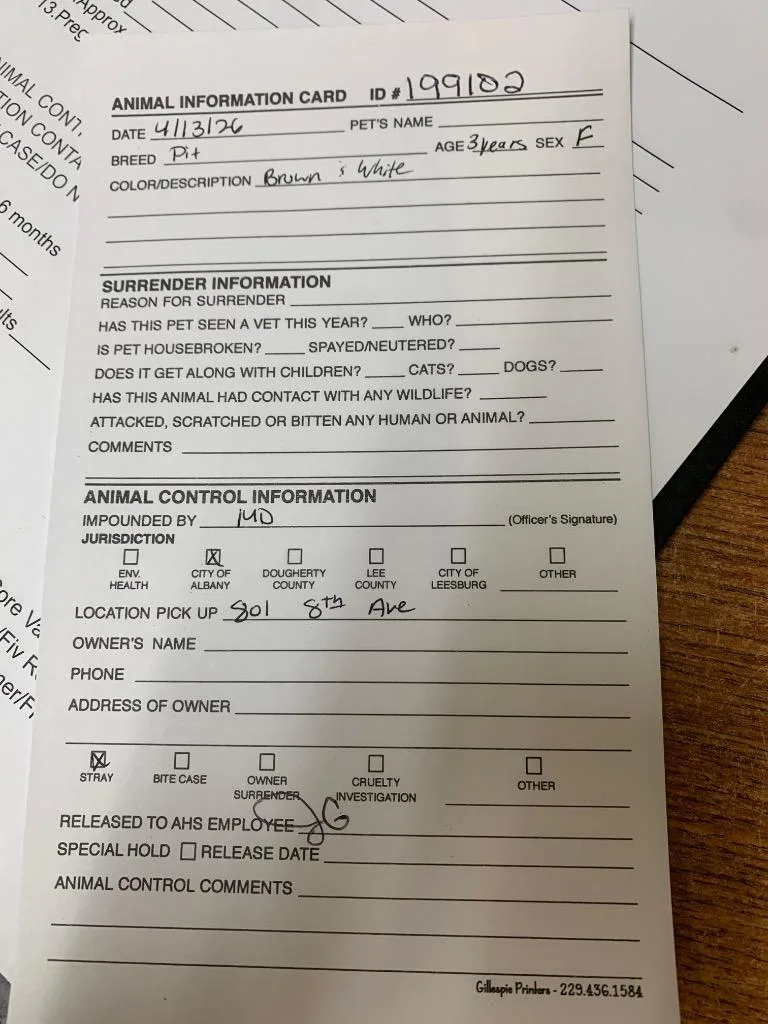 Approx
13.Preg
IMAL CONT
TION CONTA
CASE/DO N
6 months
lts
ore Va
/Fiv R
ner/F
ANIMAL INFORMATION CARD ID # 199102
DATE 4/13/26 PET'S NAME
BREED Pit AGE 3 years SEX F
COLOR/DESCRIPTION Brown & White
SURRENDER INFORMATION
REASON FOR SURRENDER
HAS THIS PET SEEN A VET THIS YEAR? WHO?
IS PET HOUSEBROKEN? SPAYED/NEUTERED?
DOES IT GET ALONG WITH CHILDREN? CATS? DOGS?
HAS THIS ANIMAL HAD CONTACT WITH ANY WILDLIFE?
ATTACKED, SCRATCHED OR BITTEN ANY HUMAN OR ANIMAL?
COMMENTS
ANIMAL CONTROL INFORMATION
IMPOUNDED BY (Officer's Signature)
JURISDICTION
ENV. HEALTH CITY OF ALBANY DOUGHERTY COUNTY LEE COUNTY CITY OF LEESBURG OTHER
LOCATION PICK UP 801 8th Ave
OWNER'S NAME
PHONE
ADDRESS OF OWNER
STRAY BITE CASE OWNER SURRENDER CRUELTY INVESTIGATION OTHER
RELEASED TO AHS EMPLOYEE JG
SPECIAL HOLD RELEASE DATE
ANIMAL CONTROL COMMENTS
Gillespie Printers - 229.436.1584